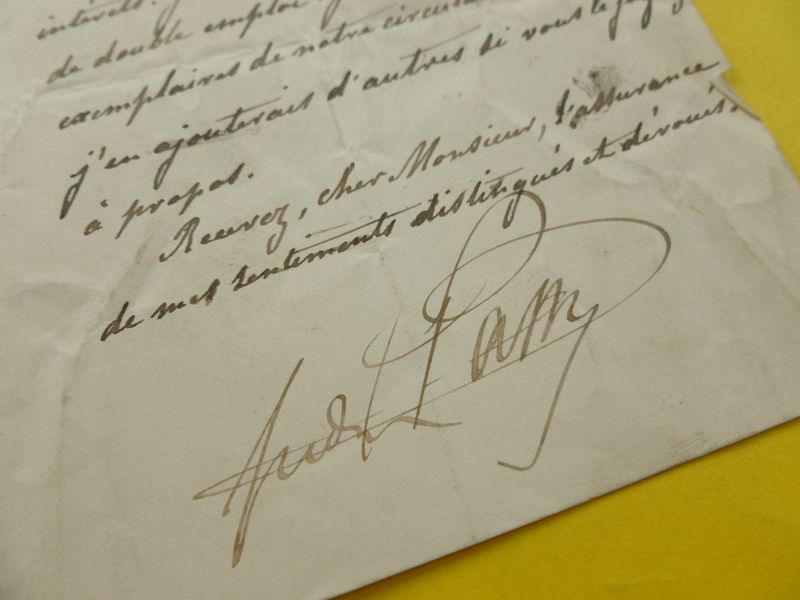 intérêts.
de double emploi
exemplaires de notre circulaire
j'en ajouterais d'autres si vous le jugez
à propos.
Recevez, cher Monsieur, l'assurance
de mes sentiments distingués et dévoués.
André